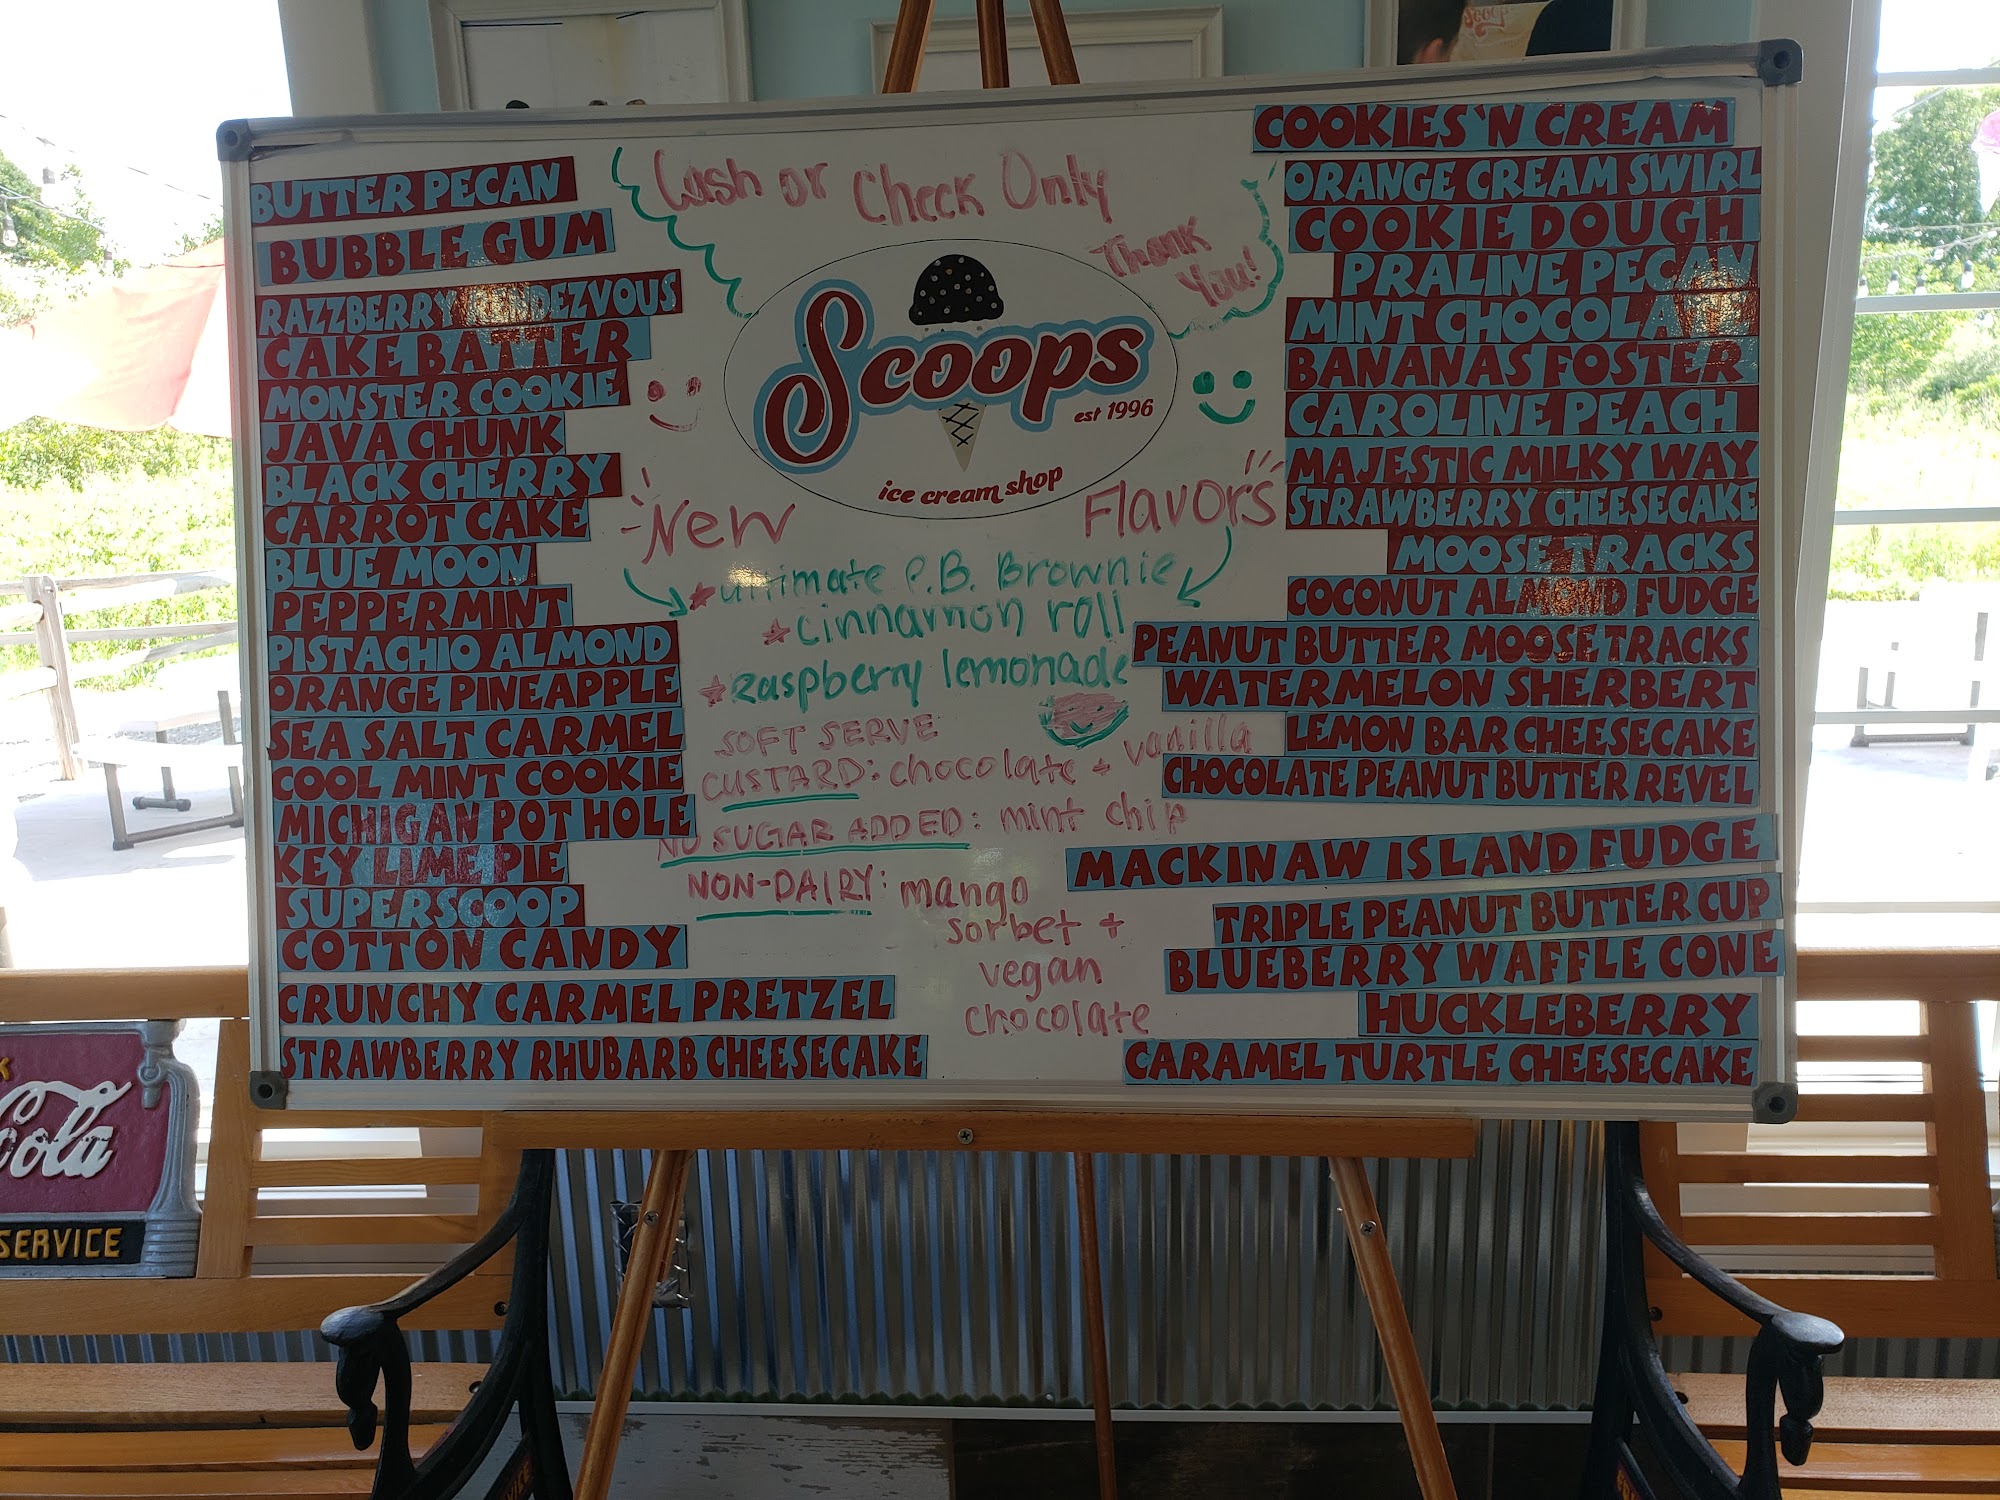 BUTTER PECAN
BUBBLE GUM
RAZZBERRY RENDEZVOUS
CAKE BATTER
MONSTER COOKIE
JAVA CHUNK
BLACK CHERRY
CARROT CAKE
BLUE MOON
PEPPERMINT
PISTACHIO ALMOND
ORANGE PINEAPPLE
SEA SALT CARMEL
COOL MINT COOKIE
MICHIGAN POT HOLE
KEY LIME PIE
SUPERSCOOP
COTTON CANDY
CRUNCHY CARMEL PRETZEL
STRAWBERRY RHUBARB CHEESECAKE
Cash or Check Only
Thank
You!
Scoops
est 1996
ice cream shop
New Flavors
ultimate P.B. Brownie
cinnamon roll
Raspberry lemonade
SOFT SERVE
CUSTARD: chocolate + vanilla
NO SUGAR ADDED: mint chip
NON-DAIRY: mango
sorbet +
vegan
chocolate
COOKIES 'N CREAM
ORANGE CREAM SWIRL
COOKIE DOUGH
PRALINE PECAN
MINT CHOCOLATE
BANANAS FOSTER
CAROLINE PEACH
MAJESTIC MILKY WAY
STRAWBERRY CHEESECAKE
MOOSE TRACKS
COCONUT ALMOND FUDGE
PEANUT BUTTER MOOSE TRACKS
WATERMELON SHERBERT
LEMON BAR CHEESECAKE
CHOCOLATE PEANUT BUTTER REVEL
MACKINAW ISLAND FUDGE
TRIPLE PEANUT BUTTER CUP
BLUEBERRY WAFFLE CONE
HUCKLEBERRY
CARAMEL TURTLE CHEESECAKE
Cola
SERVICE